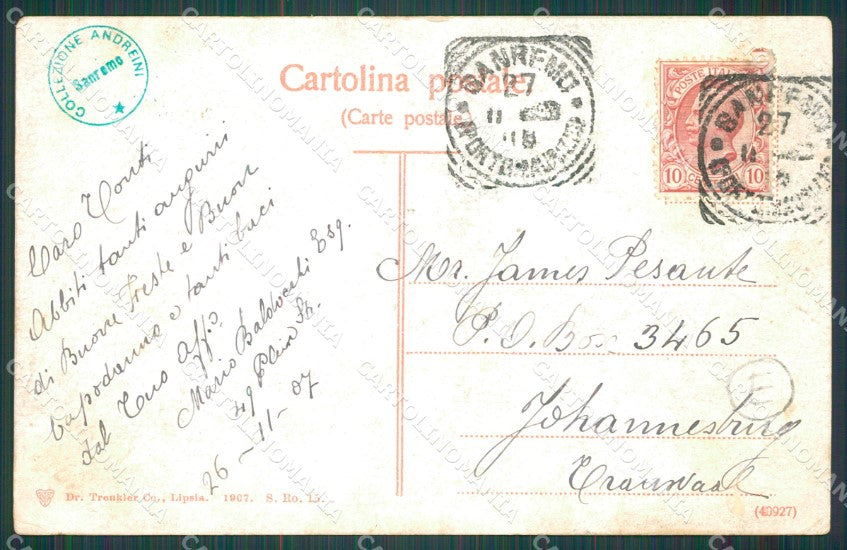 COLLEZIONE ANDREINI
Sanremo
Cartolina postale
(Carte postale)
SANREMO
27
11
(PORTO MAURIZIO)
POSTE ITALIANE
10 10
SANREMO
27
11
(PORTO MAURIZIO)
Caro Conti
Abbiti tanti auguri
di Buone Feste e Buon
Capodanno e tanti baci
dal Tuo Affo.
Mario Baldocchi Esq.
49 St.
26-11-07
Mr. James Pesante
P.O. Box 3465
Johannesburg
Transvaal
Dr. Trenkler Co., Lipsia. 1907. S. Ro. 15.
(40927)
CARTOLINOMANIA